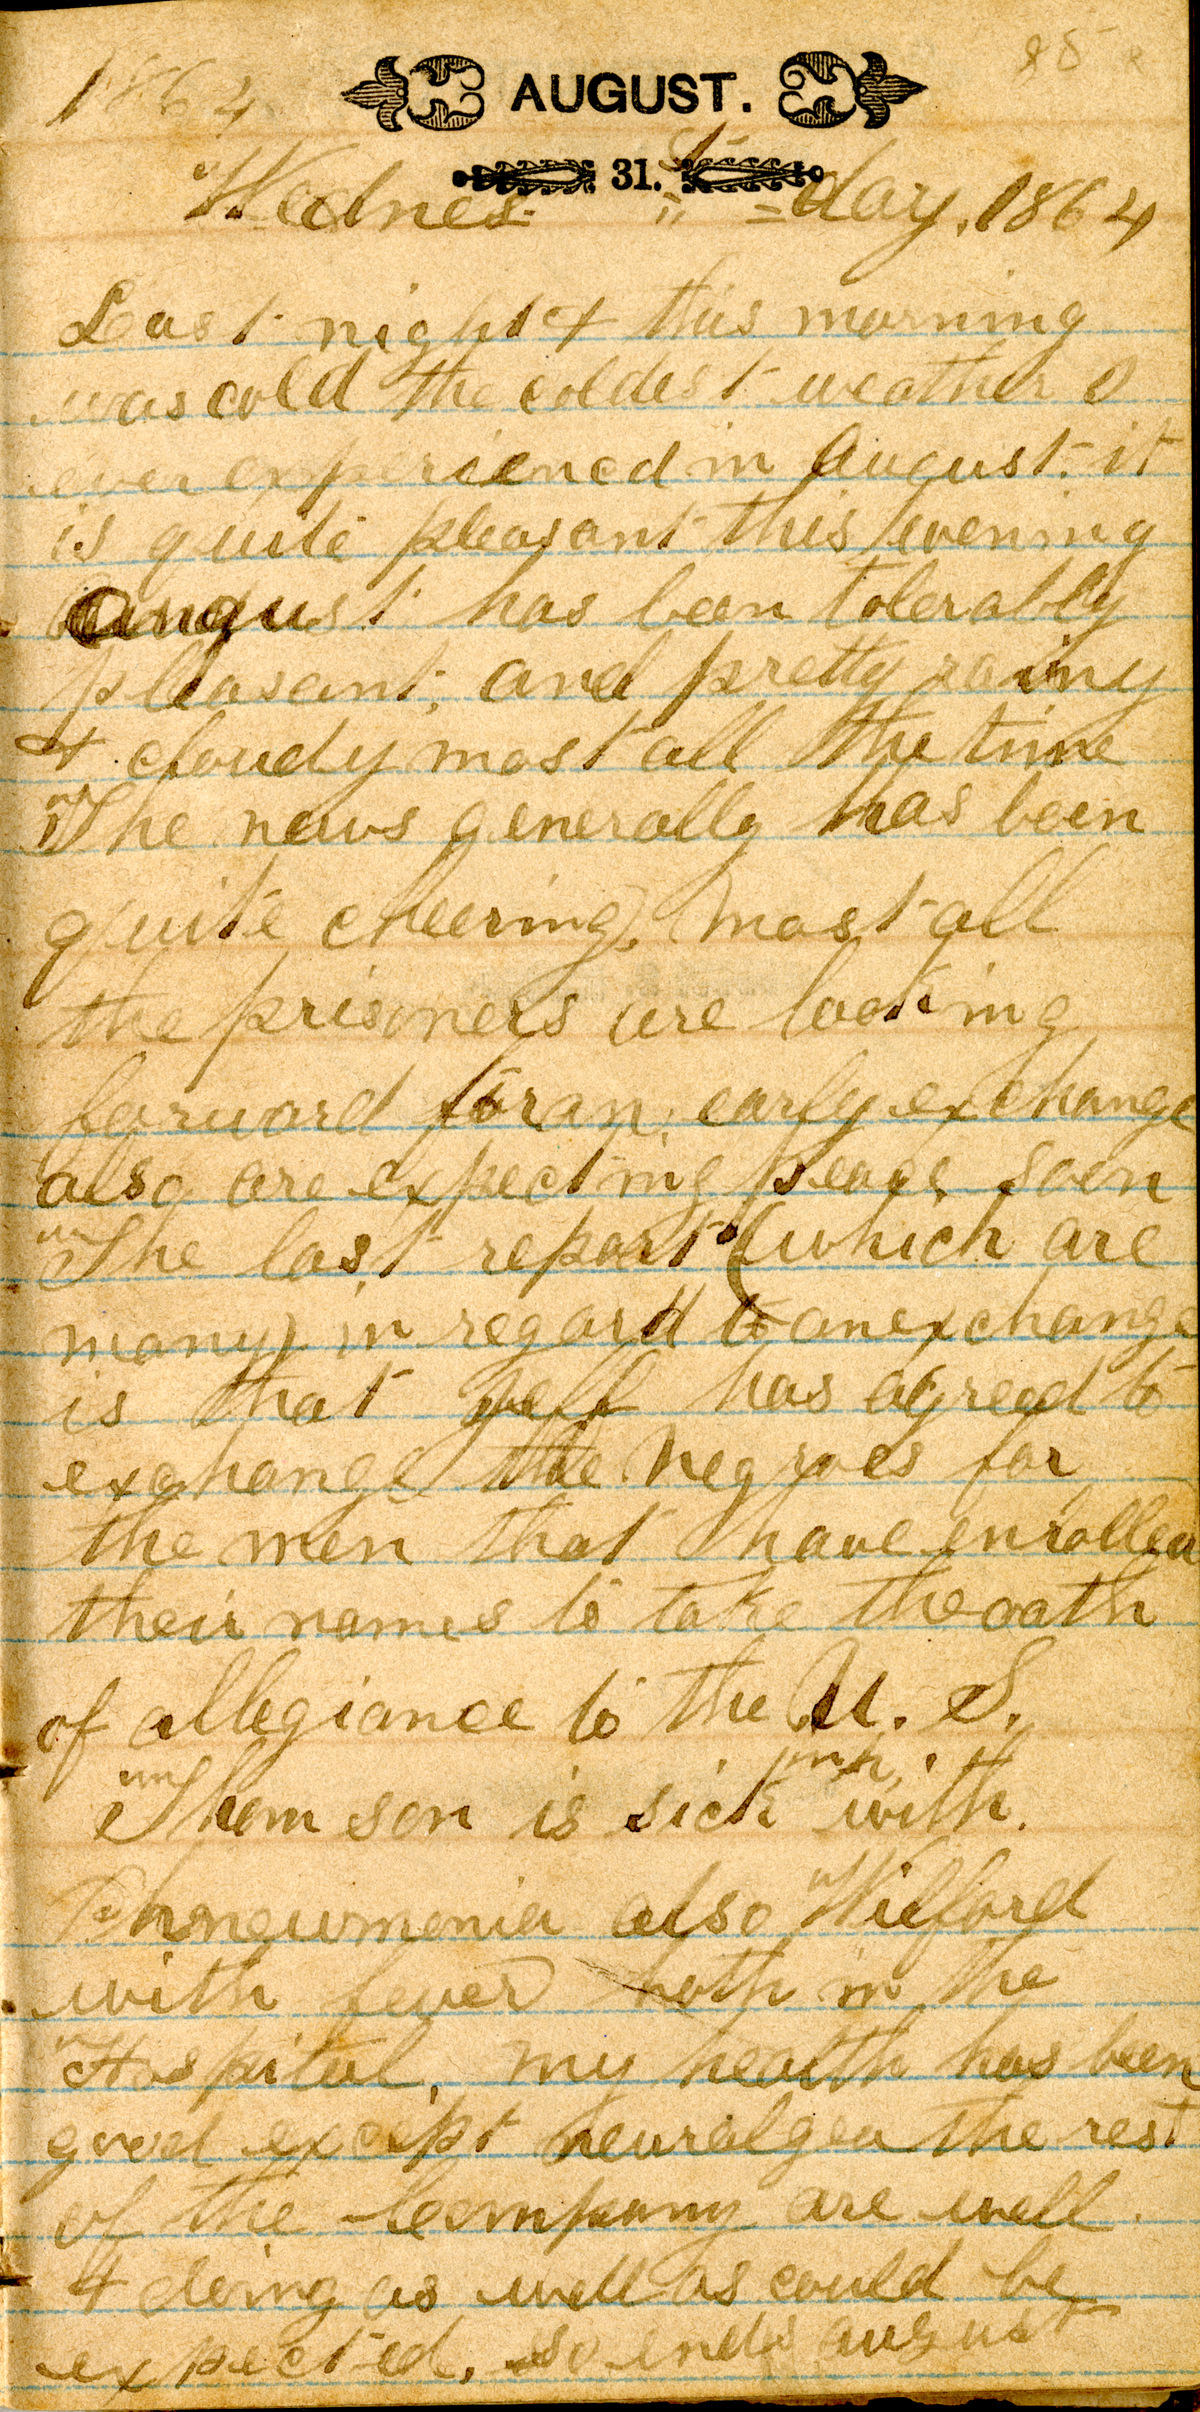 1864 85
AUGUST.
31. st
Wednes- " =day, 1864
Last night & this morning
was cold the coldest weather I
ever experienced in August. it
is quite pleasant this evening
August has been tolerably
pleasant, and pretty rainy
& cloudy most all the time
The news generally has been
quite cheering, most all
the prisoners are looking
forward for an early exchange
also are expecting peace soon
The last report (which are
many) in regard to an exchange
is that Jeff has agreed to
exchange the Negroes for
the men that have enrolled
their names to take the oath
of allegiance to the U. S.
Thom son is sick with.
Phneumonia also Wilford
with fever both in the
Hospital, my health has been
good except neuralgea the rest
of the Company are well
& doing as well as could be
expected, so ends august